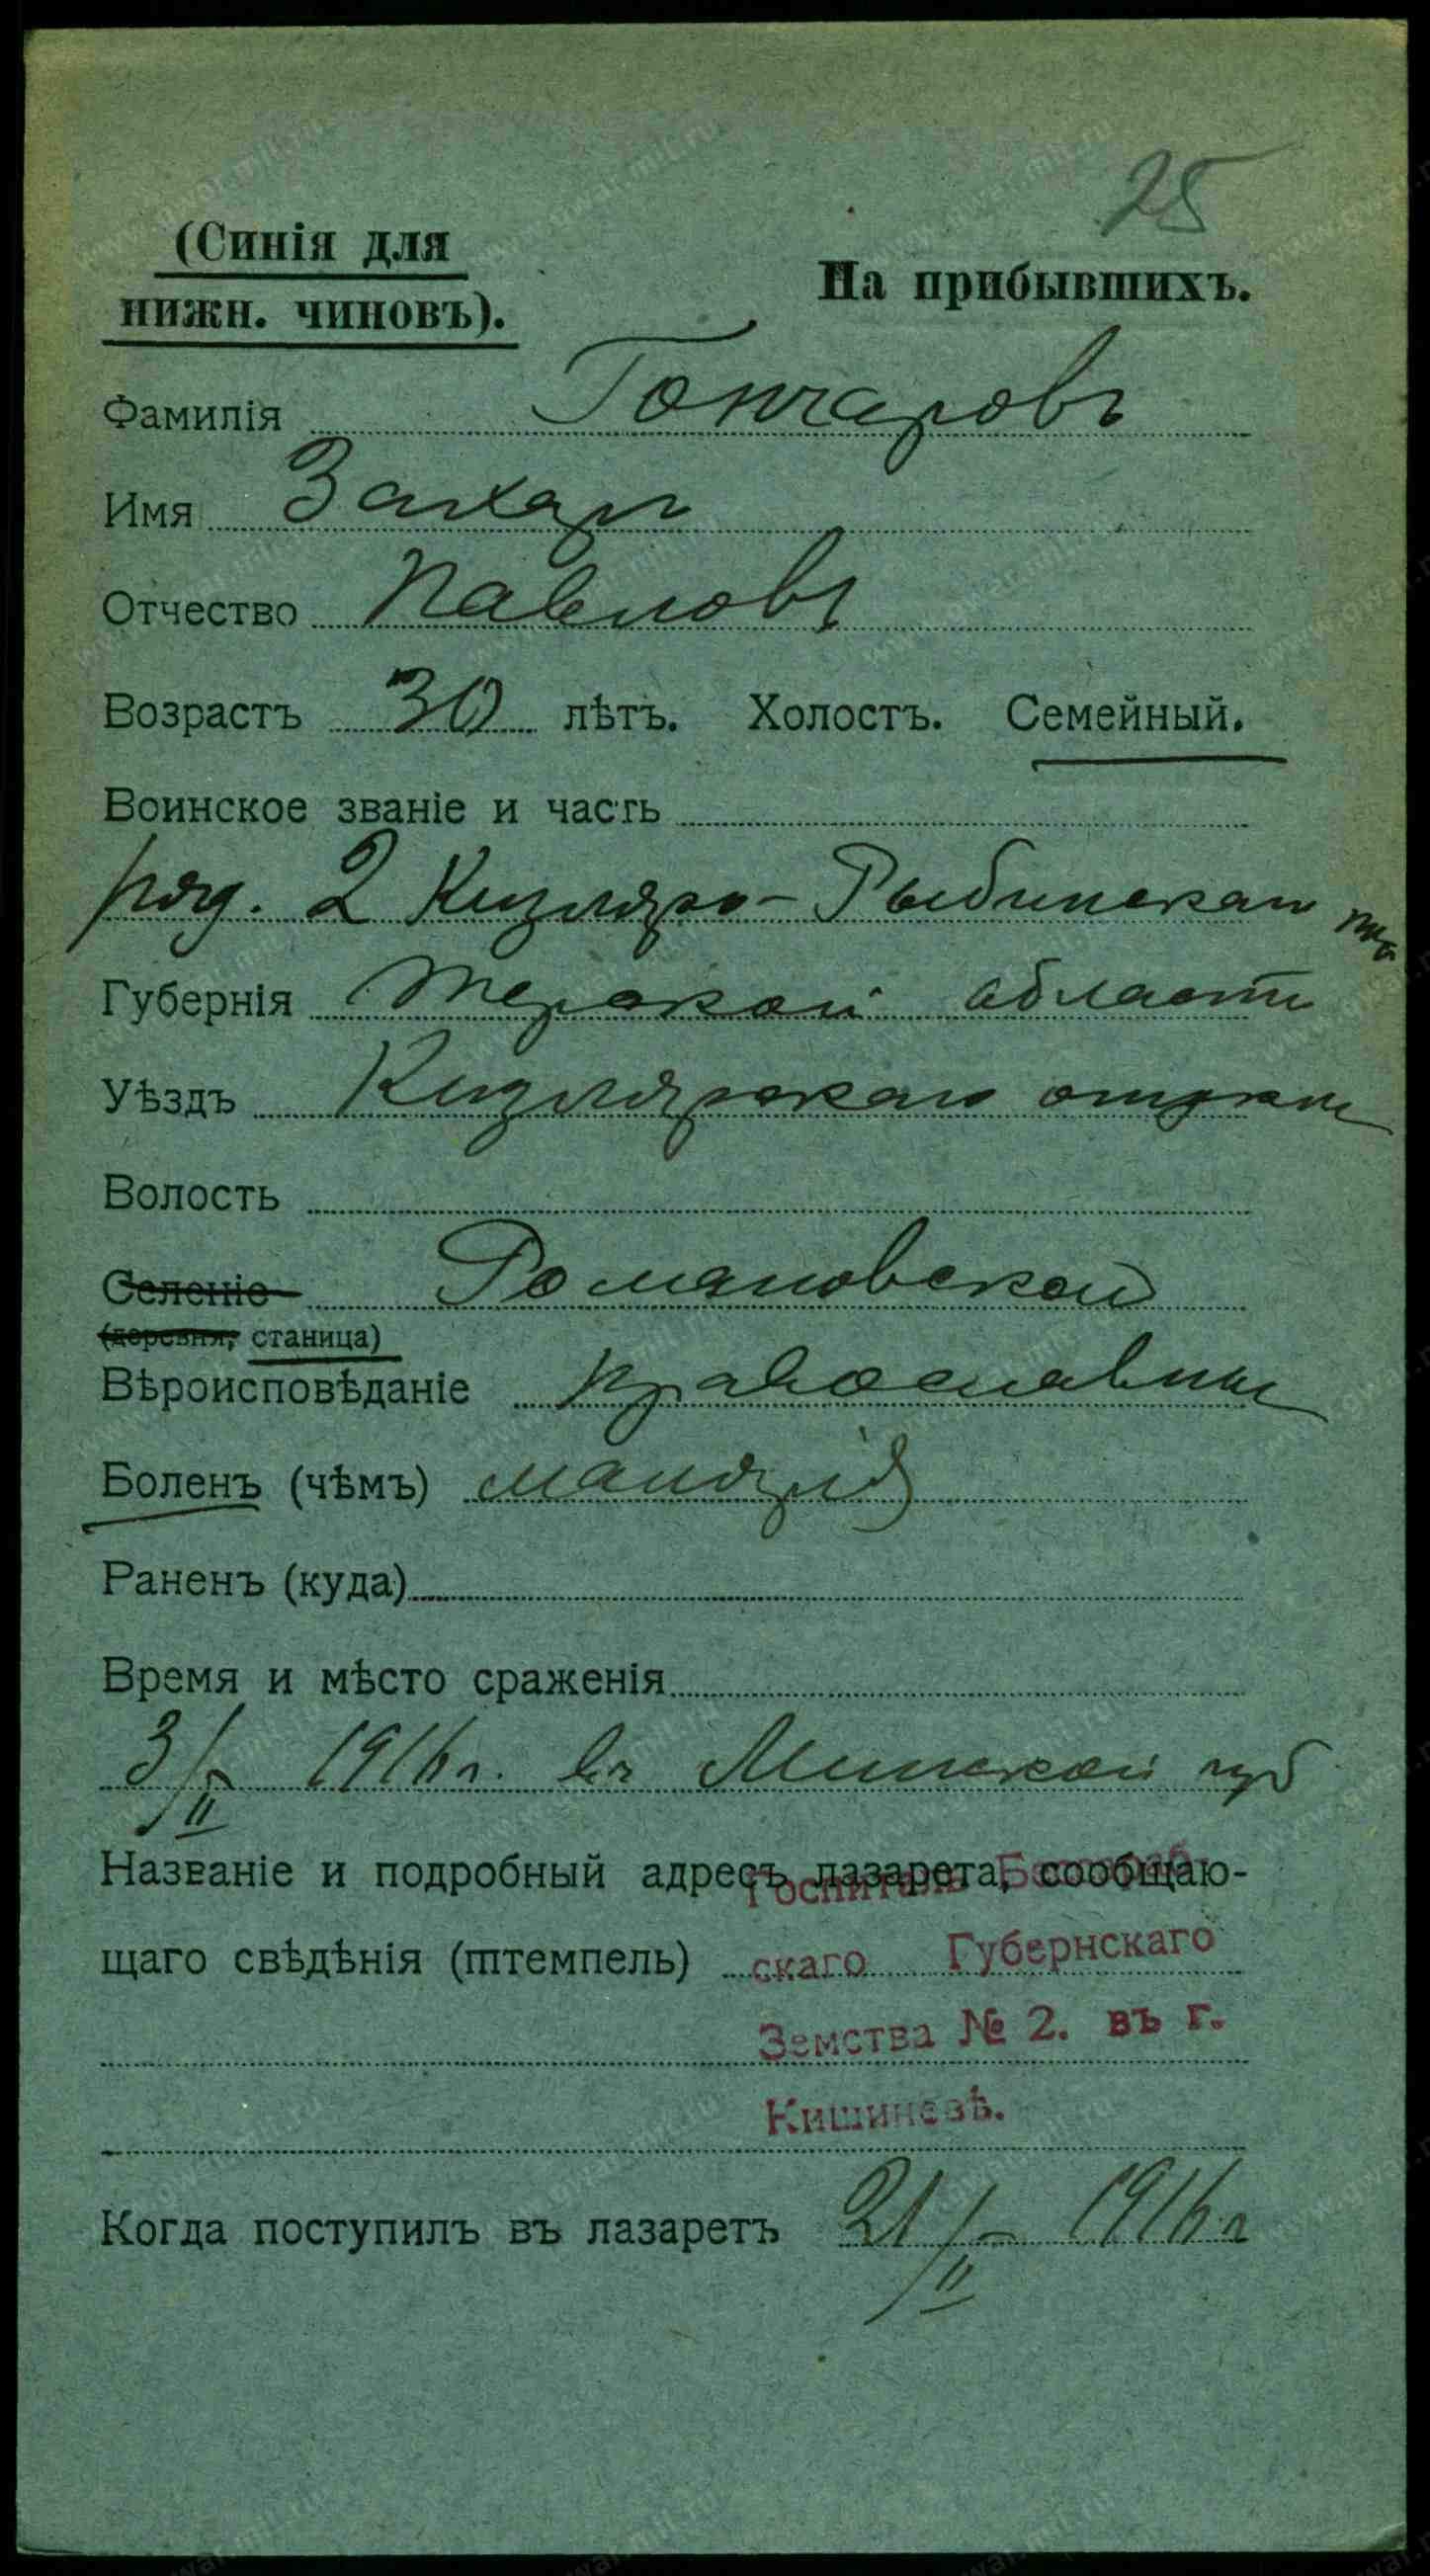 25
(Синія для
нижн. чиновъ).
На прибывшихъ.
Фамилія Гончаровъ
Имя Захаръ
Отчество Павловъ
Возрастъ 30 лѣтъ. Холостъ. Семейный.
Воинское званіе и часть
ряд. 2 Кизляро-Рыбинскаго
Губернія Терской области
Уѣздъ Кизлярскаго отдѣла
Волость
Селеніе Романовской
(деревня, станица)
Вѣроисповѣданіе православн
Боленъ (чѣмъ) малярія
Раненъ (куда)
Время и мѣсто сраженія
3/II 1916 г. въ Минской губ
Названіе и подробный адресъ лазарета, сообщаю-
щаго свѣдѣнія (штемпель)
Госпиталь Бессараб-
скаго Губернскаго
Земства № 2. въ г.
Кишиневѣ.
Когда поступилъ въ лазаретъ 21/II 1916 г